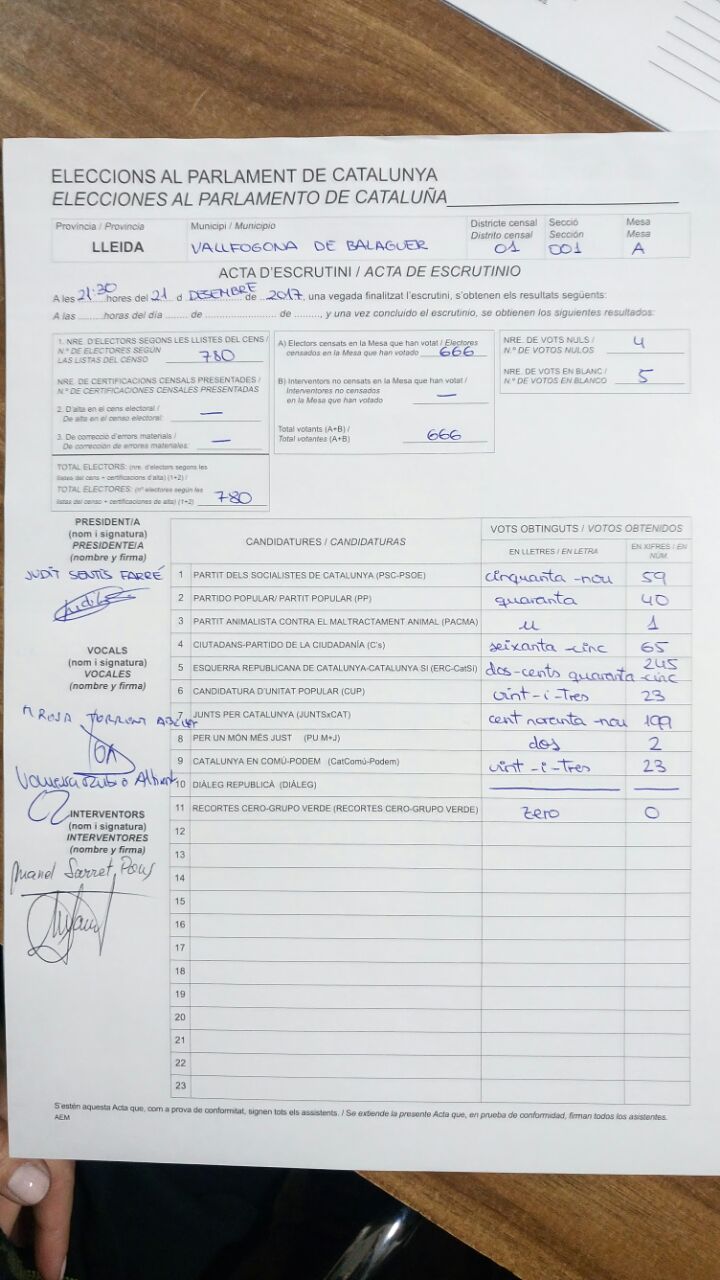 ELECCIONS AL PARLAMENT DE CATALUNYA
ELECCIONES AL PARLAMENTO DE CATALUÑA
Província / Provincia
LLEIDA
Municipi / Municipio
VALLFOGONA DE BALAGUER
Districte censal
Distrito censal
01
Secció
Sección
001
Mesa
Mesa
A
ACTA D'ESCRUTINI / ACTA DE ESCRUTINIO
A les 21:30 hores del 21 d DESEMBRE de 2017, una vegada finalitzat l'escrutini, s'obtenen els resultats següents:
A las ........ horas del día ........ de .................... de ........, y una vez concluido el escrutinio, se obtienen los siguientes resultados:
1. NRE. D'ELECTORS SEGONS LES LLISTES DEL CENS /
N.º DE ELECTORES SEGÚN
LAS LISTAS DEL CENSO 780
NRE. DE CERTIFICACIONS CENSALS PRESENTADES /
N.º DE CERTIFICACIONES CENSALES PRESENTADAS
2. D'alta en el cens electoral /
De alta en el censo electoral: —
3. De correcció d'errors materials /
De corrección de errores materiales: —
TOTAL ELECTORS: (nre. d'electors segons les
llistes del cens + certificacions d'alta) (1+2) /
TOTAL ELECTORES: (nº electores según las
listas del censo + certificaciones de alta) (1+2) 780
A) Electors censats en la Mesa que han votat / Electores
censados en la Mesa que han votado 666
B) Interventors no censats en la Mesa que han votat /
Interventores no censados
en la Mesa que han votado —
Total votants (A+B) /
Total votantes (A+B) 666
NRE. DE VOTS NULS /
N.º DE VOTOS NULOS 4
NRE. DE VOTS EN BLANC /
N.º DE VOTOS EN BLANCO 5
PRESIDENT/A
(nom i signatura)
PRESIDENTE/A
(nombre y firma)
JUDIT SENTÍS FARRÉ
VOCALS
(nom i signatura)
VOCALES
(nombre y firma)
M ROSA
Vanessa Rubio
INTERVENTORS
(nom i signatura)
INTERVENTORES
(nombre y firma)
Manel Sarret Pons
CANDIDATURES / CANDIDATURAS
VOTS OBTINGUTS / VOTOS OBTENIDOS
EN LLETRES / EN LETRA
EN XIFRES / EN
NÚM.
1 PARTIT DELS SOCIALISTES DE CATALUNYA (PSC-PSOE) cinquanta-nou 59
2 PARTIDO POPULAR/ PARTIT POPULAR (PP) quaranta 40
3 PARTIT ANIMALISTA CONTRA EL MALTRACTAMENT ANIMAL (PACMA) u 1
4 CIUTADANS-PARTIDO DE LA CIUDADANÍA (C's) seixanta-cinc 65
5 ESQUERRA REPUBLICANA DE CATALUNYA-CATALUNYA SÍ (ERC-CatSí) dos-cents quaranta-cinc 245
6 CANDIDATURA D'UNITAT POPULAR (CUP) vint-i-tres 23
7 JUNTS PER CATALUNYA (JUNTSxCAT) cent noranta-nou 199
8 PER UN MÓN MÉS JUST (PU M+J) dos 2
9 CATALUNYA EN COMÚ-PODEM (CatComú-Podem) vint-i-tres 23
10 DIÀLEG REPUBLICÀ (DIÀLEG) — —
11 RECORTES CERO-GRUPO VERDE (RECORTES CERO-GRUPO VERDE) zero 0
12
13
14
15
16
17
18
19
20
21
22
23
S'estén aquesta Acta que, com a prova de conformitat, signen tots els assistents. / Se extiende la presente Acta que, en prueba de conformidad, firman todos los asistentes.
AEM